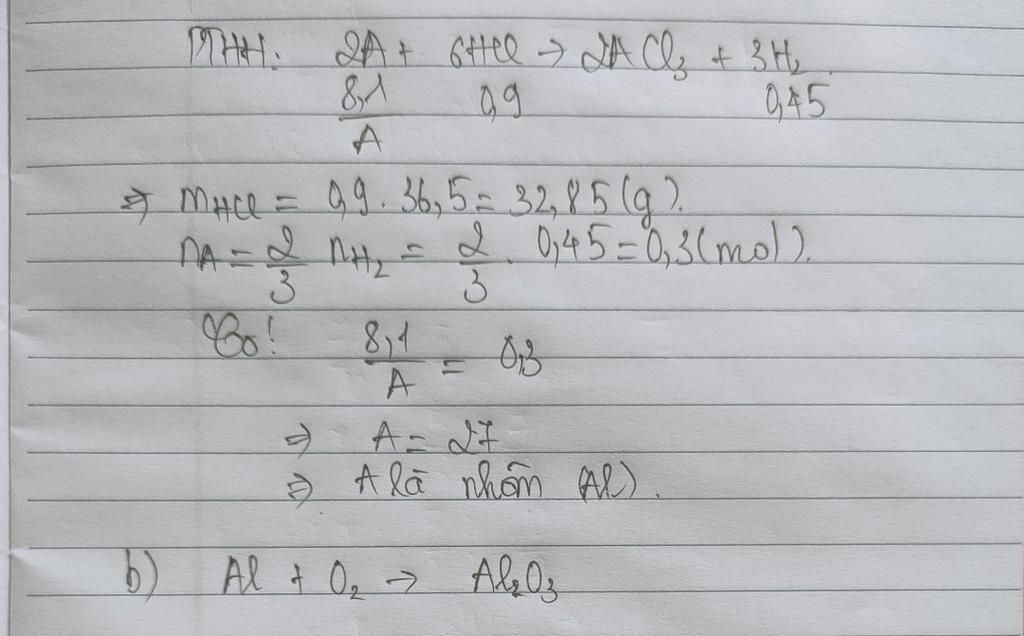 PTHH: 2A + 6HCl → 2ACl₃ + 3H₂
8,1/A 0,9 0,45
⇒ mHCl = 0,9 . 36,5 = 32,85 (g).
nA = 2/3 nH₂ = 2/3 . 0,45 = 0,3 (mol).
Có: 8,1/A = 0,3
⇒ A = 27
⇒ A là nhôm (Al).
b) Al + O₂ → Al₂O₃